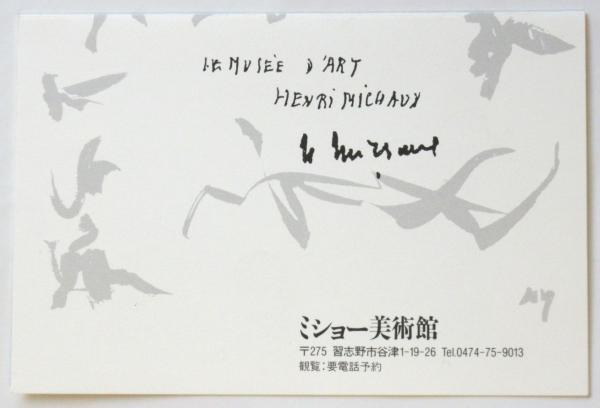 LE MUSÉE D'ART
HENRI MICHAUX
ミショー美術館
〒275 習志野市谷津1-19-26 Tel.0474-75-9013
観覧:要電話予約